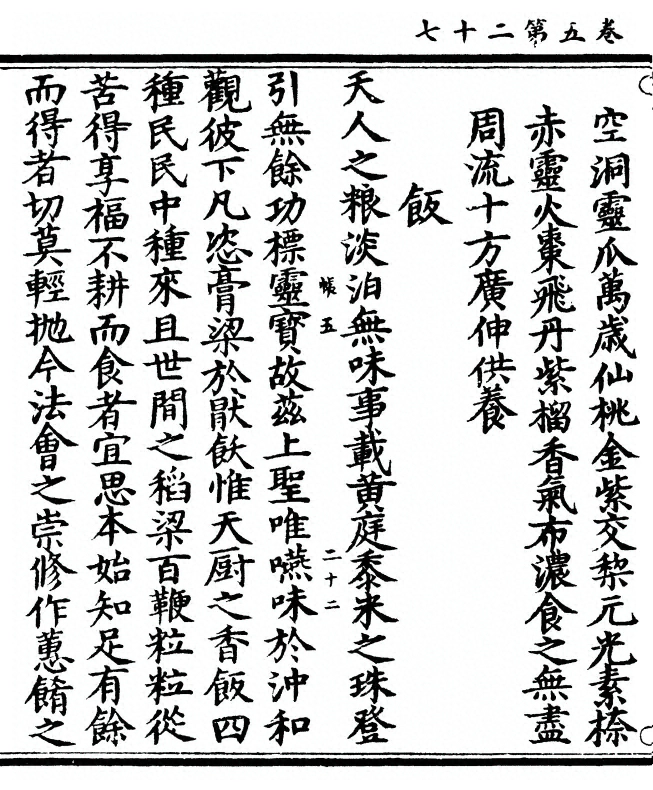 卷五第二十七
空洞靈瓜萬歲仙桃金紫交梨元光素㮈
赤靈火棗飛丹紫榴香氣布濃食之無盡
周流十方廣伸供養
飯
天人之粮淡泊無味事載黄庭黍米之珠登
帳五
二十二
引無餘功標靈寶故茲上聖唯嚥味於沖和
觀彼下凡恣膏梁於猒飫惟天厨之香飯四
種民民中種來且世間之稻梁百鞭粒粒從
苦得享福不耕而食者宜思本始知足有餘
而得者切莫輕抛今法會之崇修作蕙餚之